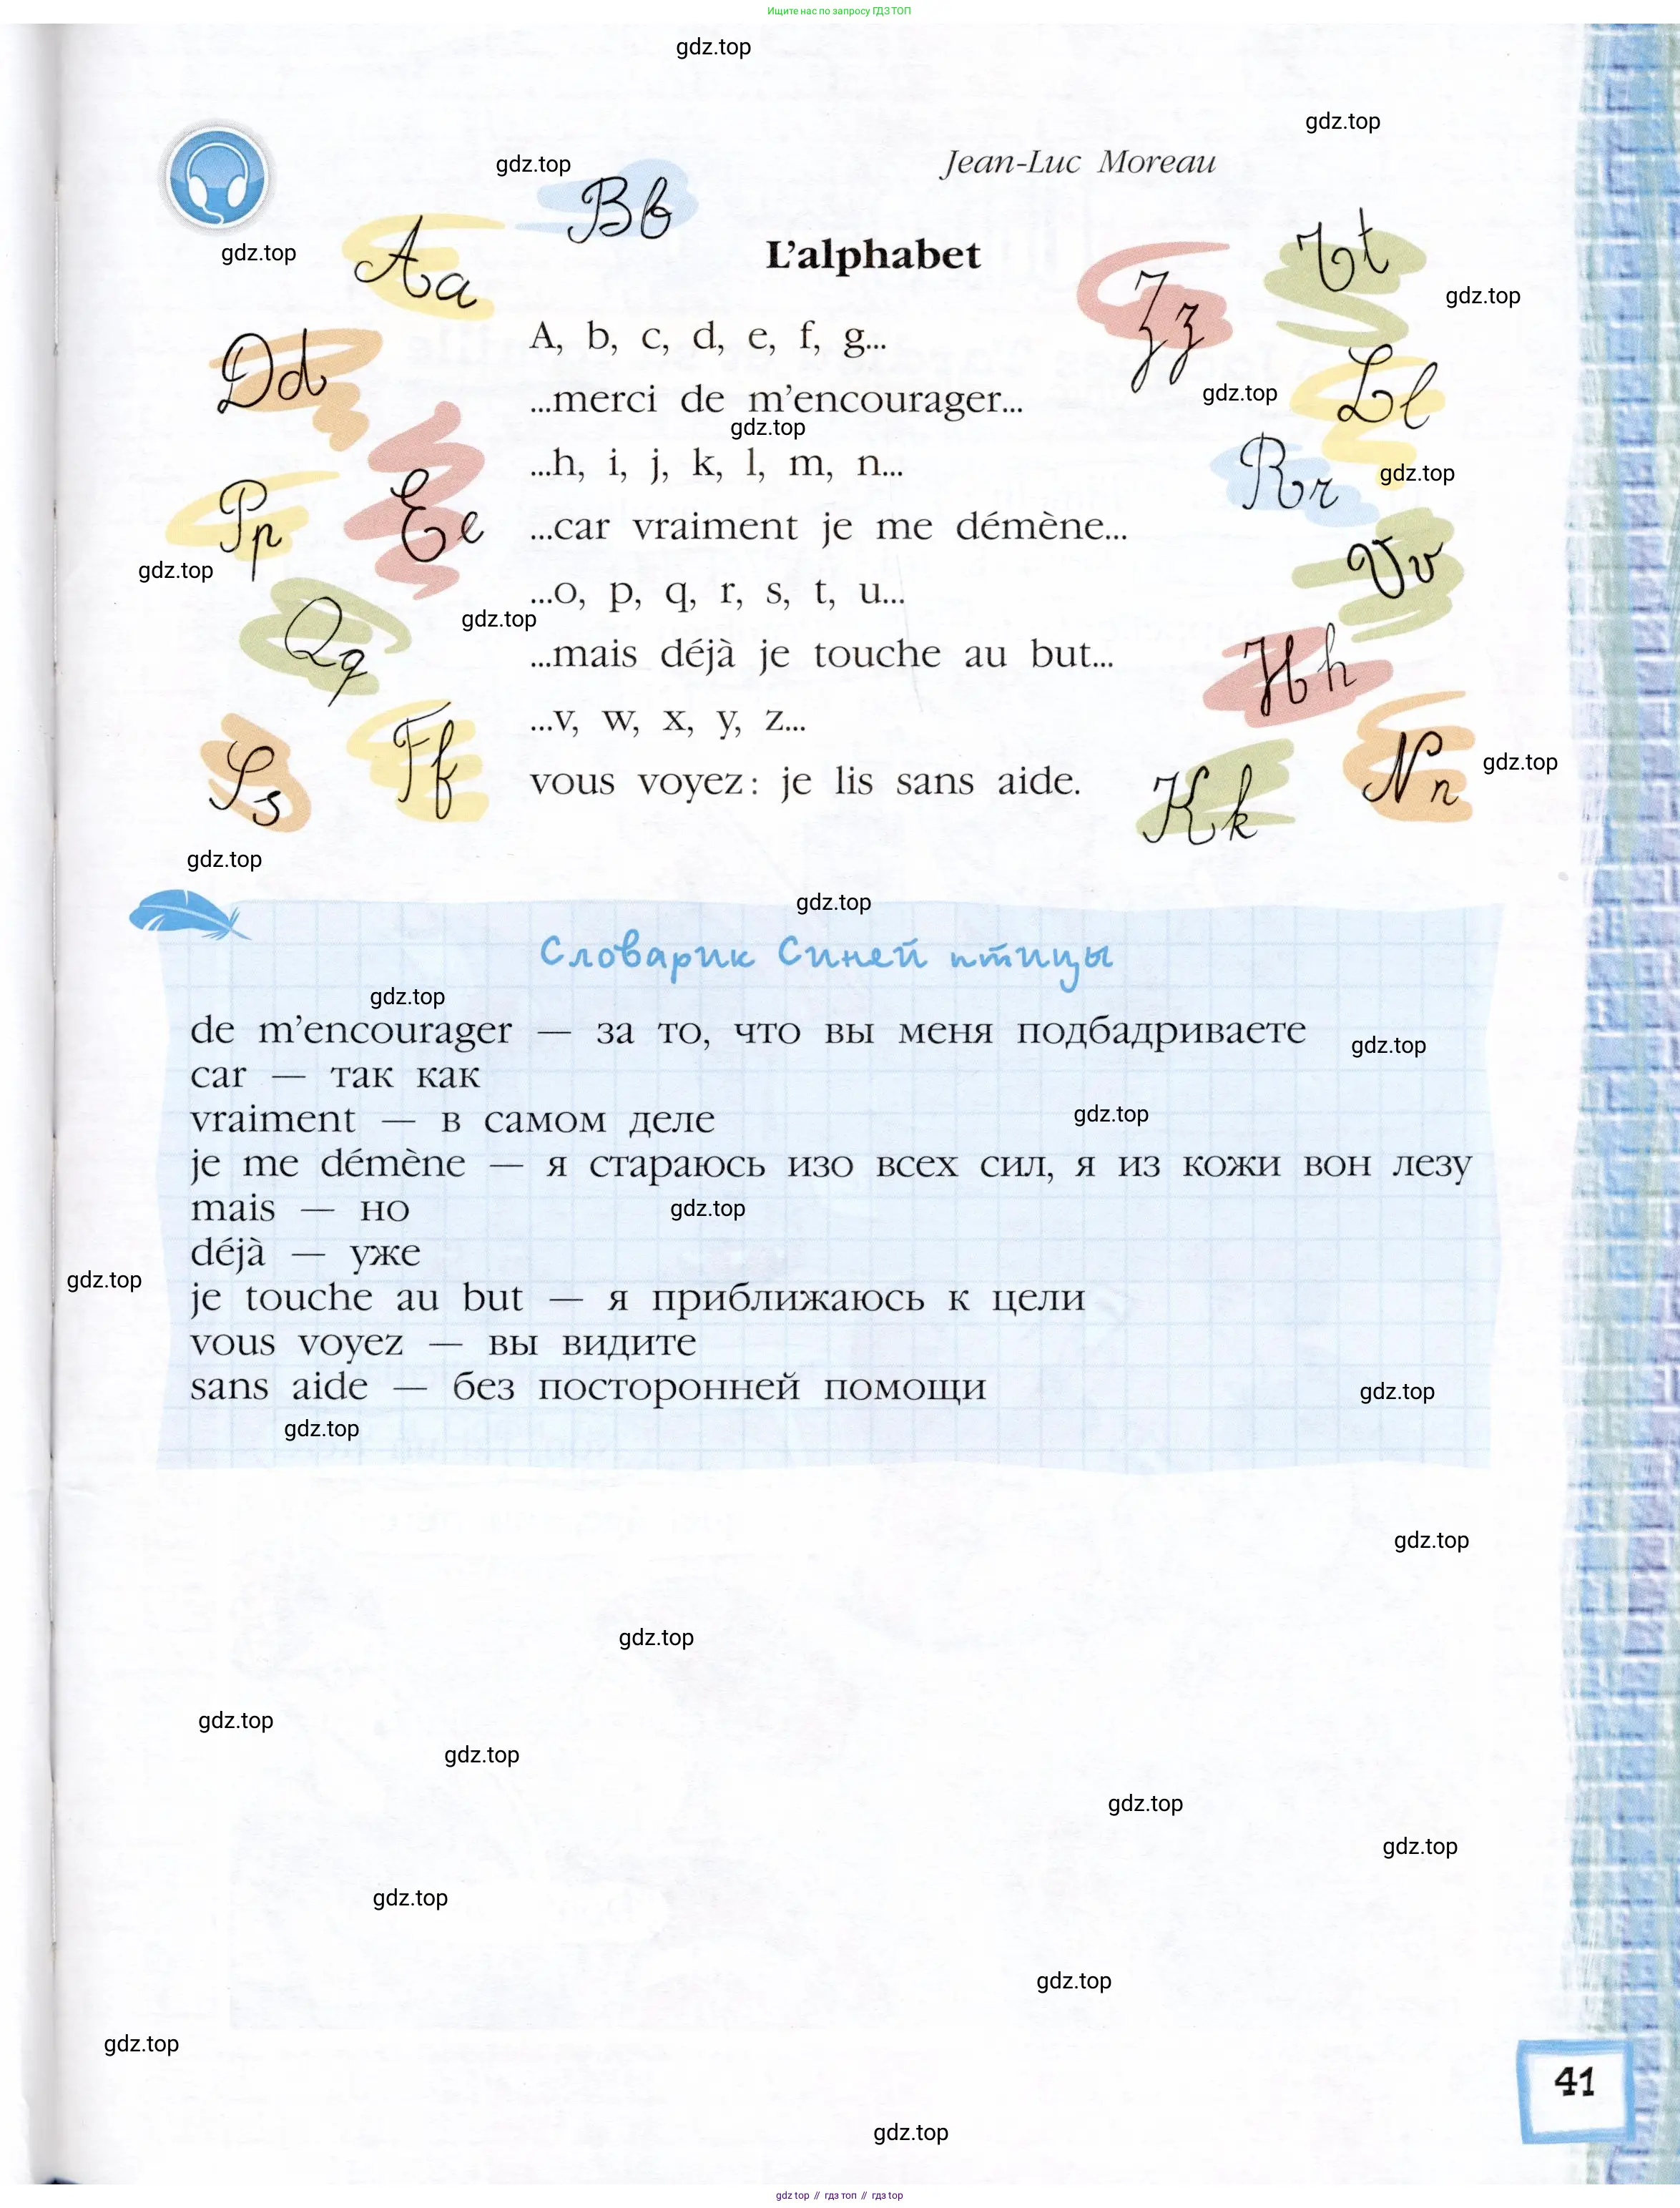 Ищите нас по запросу ГДЗ ТОП
gdz.top
gdz.top
gdz.top
Jean-Luc Moreau
Bb
Aa
gdz.top
L'alphabet
Tt
gdz.top
Zz
A, b, c, d, e, f, g...
Dd
Ll
gdz.top
...merci de m'encourager...
gdz.top
...h, i, j, k, l, m, n...
gdz.top
Rr
Pp
Ee
...car vraiment je me démène...
Vv
gdz.top
...o, p, q, r, s, t, u...
gdz.top
Qq
...mais déjà je touche au but...
Hh
...v, w, x, y, z...
Ss
Ff
Nn
gdz.top
vous voyez: je lis sans aide.
Kk
gdz.top
gdz.top
Словарик Синей птицы
gdz.top
de m'encourager — за то, что вы меня подбадриваете
gdz.top
car — так как
vraiment — в самом деле
gdz.top
je me démène — я стараюсь изо всех сил, я из кожи вон лезу
mais — но
gdz.top
déjà — уже
gdz.top
je touche au but — я приближаюсь к цели
vous voyez — вы видите
sans aide — без посторонней помощи
gdz.top
gdz.top
gdz.top
gdz.top
gdz.top
gdz.top
gdz.top
gdz.top
gdz.top
gdz.top
gdz.top
41
gdz.top
gdz top // гдз топ // гдз top